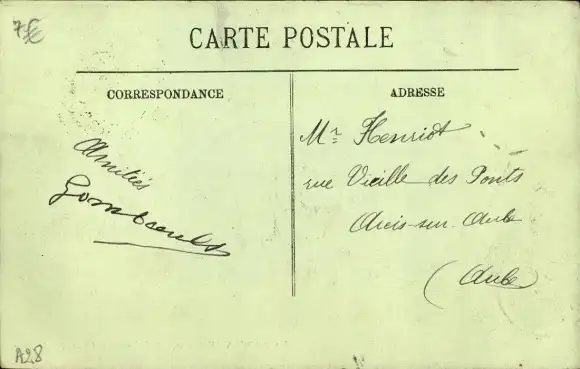 7€
CARTE POSTALE
CORRESPONDANCE
ADRESSE
Amitiés
Gombault
Mr Henriot
rue Vieille des Ponts
Arcis-sur-Aube
(Aube
A28